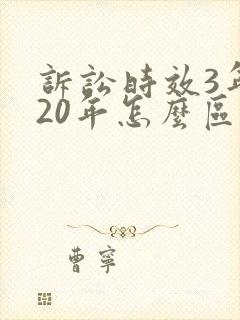 訴訟時效3年
20年怎麼區
曹寧